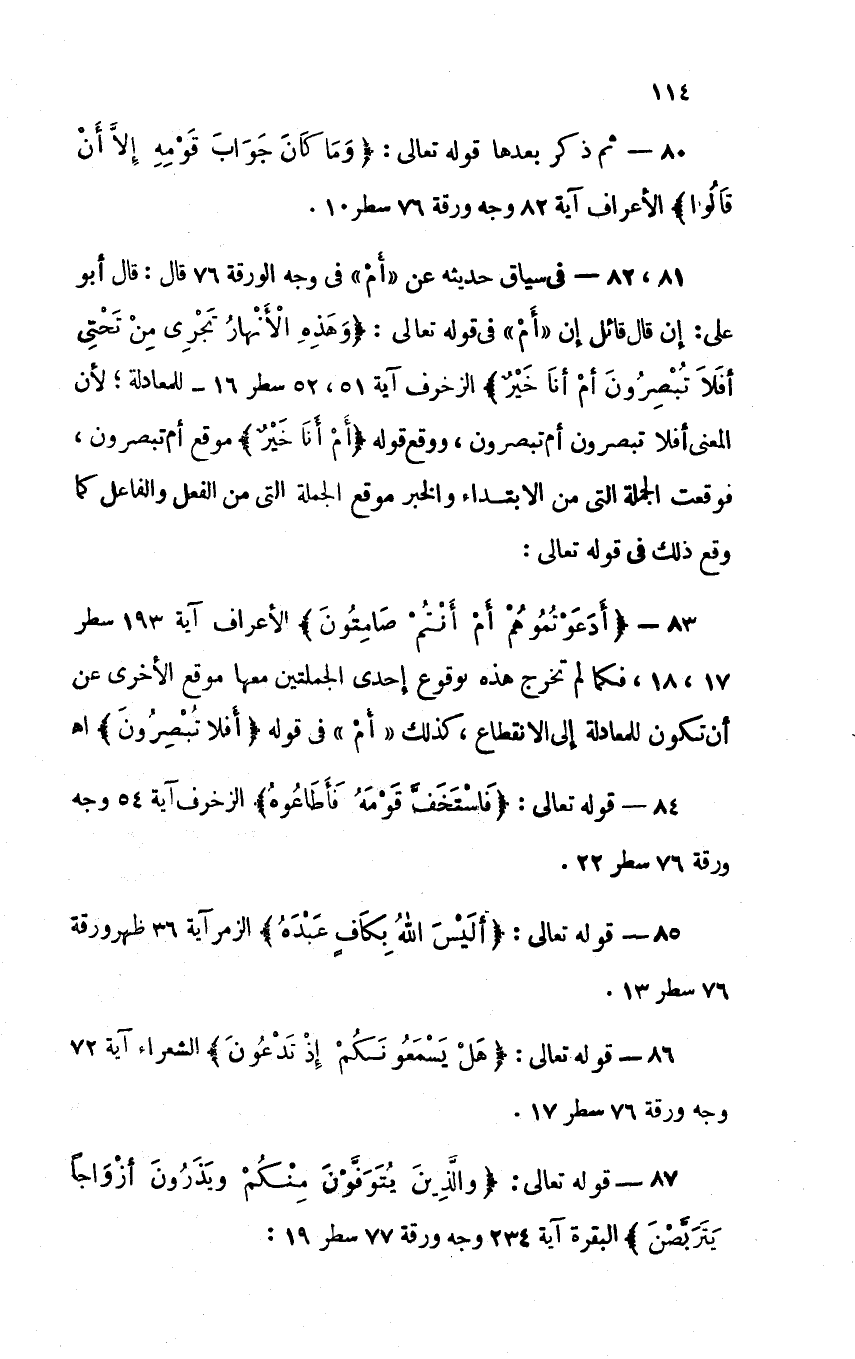 ١١٤
٨٠ — ثم ذكر بعدها قوله تعالى : ﴿ وَمَا كَانَ جَوَابَ قَوْمِهِ إِلاَّ أَنْ
قَالُوا﴾ الأعراف آية ٨٢ وجه ورقة ٧٦ سطر١٠ .
٨١ ، ٨٢ — فى سياق حديثه عن «أَمْ» فى وجه الورقة ٧٦ قال : قال أبو
على: إن قال قائل إن «أَمْ» فى قوله تعالى : ﴿وَهَذِهِ الْأَنْهارُ تَجْرِى مِنْ تَحْتِى
أفَلاَ تُبْصِرُونَ أمْ أنَا خَيْرٌ﴾ الزخرف آية ٥١ ، ٥٢ سطر ١٦ ــ للمعادلة ؛ لأن
المعنى أفلا تبصرون أم تبصرون ، ووقع قوله ﴿أَمْ أَنَا خَيْرٌ﴾ موقع أم تبصرون ،
فوقعت الجملة التى من الابتداء والخبر موقع الجملة التى من الفعل والفاعل كما
وقع ذلك فى قوله تعالى :
٨٣ — ﴿أَدَعَوْتُمُوهُمْ أَمْ أَنْتُمْ صَامِتُونَ﴾ الأعراف آية ١٩٣ سطر
١٧ ، ١٨ ، فكما لم تخرج هذه بوقوع إحدى الجملتين معها موقع الأخرى عن
أن تكون للمعادلة إلى الانقطاع ، كذلك « أمْ » فى قوله ﴿ أَفلا تُبْصِرُونَ ﴾ اه
٨٤ — قوله تعالى : ﴿فَاسْتَخَفَّ قَوْمَهُ فَأَطَاعُوهُ﴾ الزخرف آية ٥٤ وجه
ورقة ٧٦ سطر ٢٢ .
٨٥ — قوله تعالى : ﴿أَلَيْسَ اللهُ بِكَافٍ عَبْدَهُ﴾ الزمر آية ٣٦ ظهر ورقة
٧٦ سطر ١٣ .
٨٦ — قوله تعالى : ﴿ هَلْ يَسْمَعُونَكُمْ إِذْ تَدْعُونَ ﴾ الشعراء آية ٧٢
وجه ورقة ٧٦ سطر ١٧ .
٨٧ — قوله تعالى : ﴿ والَّذِينَ يُتَوَفَّوْنَ مِنْكُمْ ويَذَرُونَ أزْوَاجاً
يَتَرَبَّصْنَ ﴾ البقرة آية ٢٣٤ وجه ورقة ٧٧ سطر ١٩ :